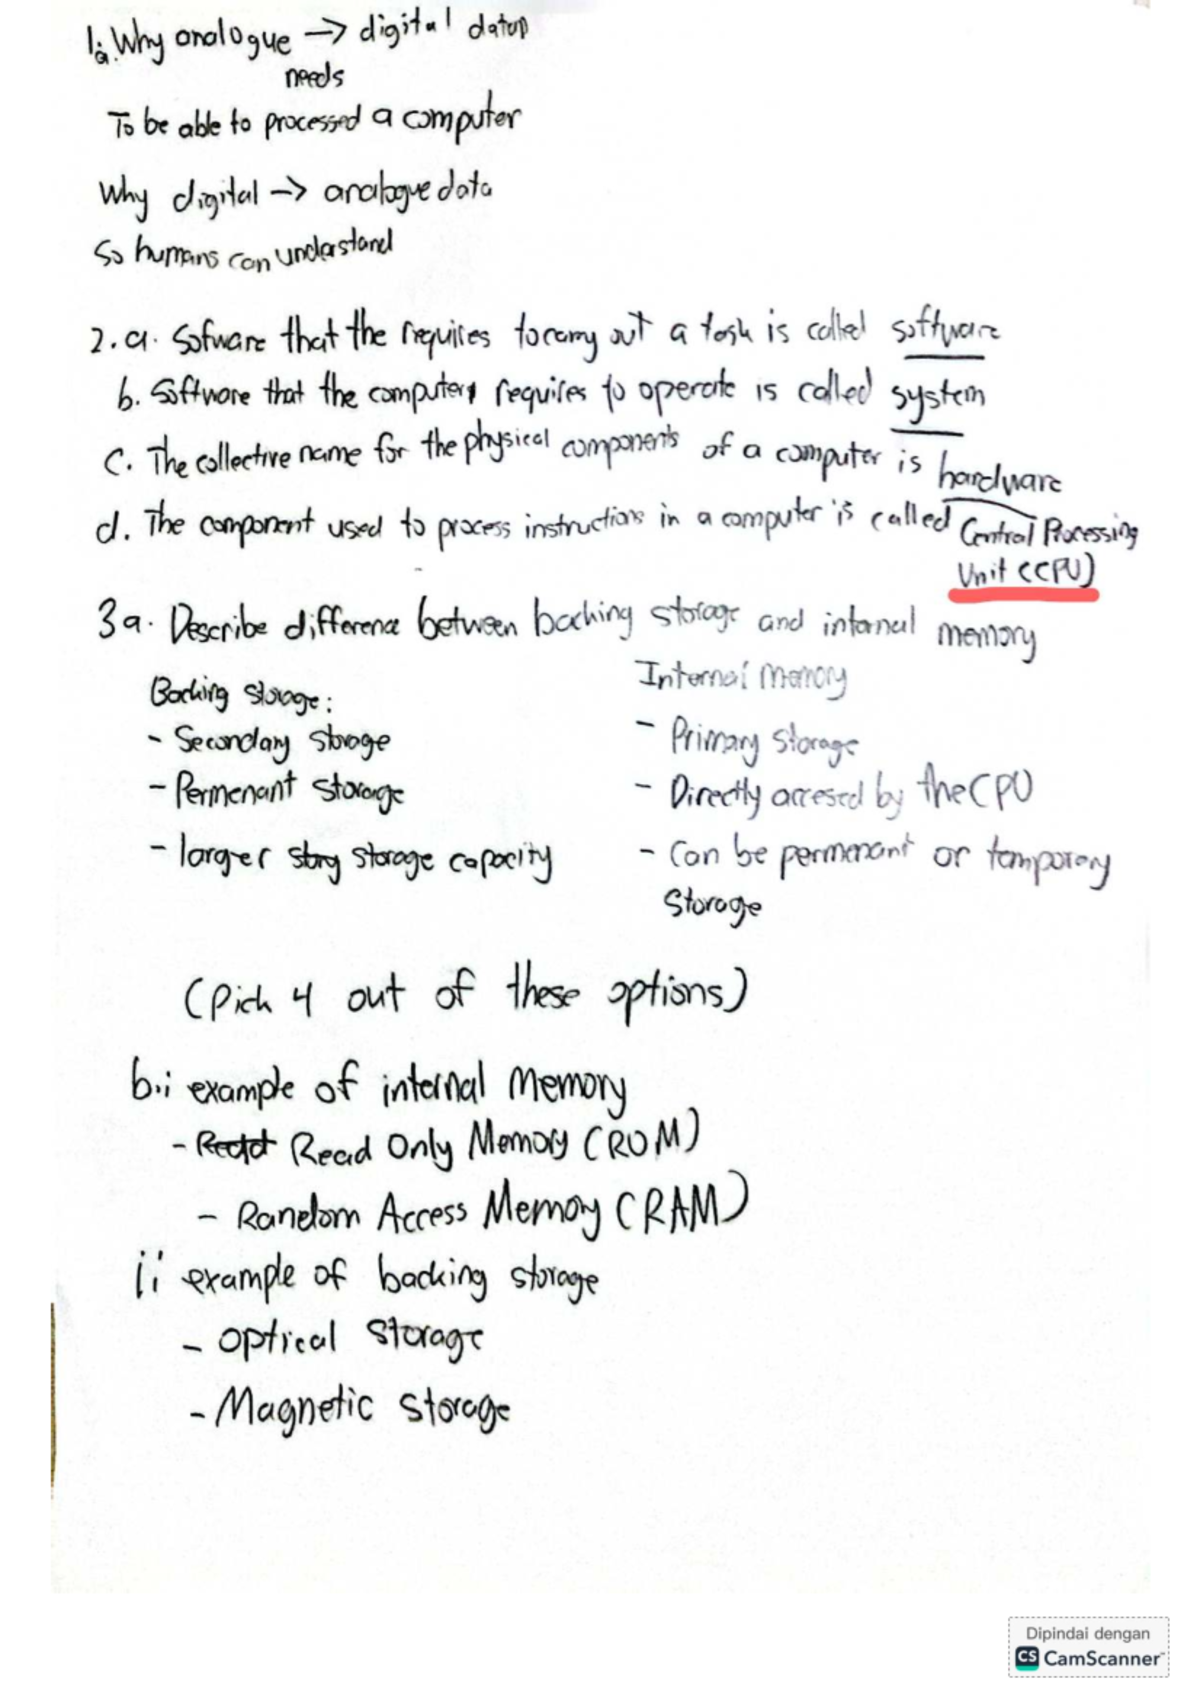 1.a. Why analogue → digital data
needs
To be able to processed a computer
Why digital → analogue data
So humans can understand
2. a. Sofware that the requires to carry out a task is called software
b. Software that the computer requires to operate is called system
C. The collective name for the physical components of a computer is hardware
d. The component used to process instructions in a computer is called Central Processing
Unit (CPU)
3a. Describe difference between backing storage and internal memory
Backing storage:
- Secondary storage
- Permenant storage
- larger storage capacity
Internal Memory
- Primary storage
- Directly accesed by the CPU
- Can be permenant or temporary
Storage
(Pick 4 out of these options)
b.i example of internal Memory
- Read Only Memory (ROM)
- Random Access Memoy (RAM)
ii example of backing storage
- optical storage
- Magnetic storage
Dipindai dengan
CS CamScanner